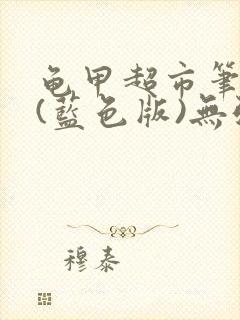 龟甲超市筆
(藍色版)無
穆泰